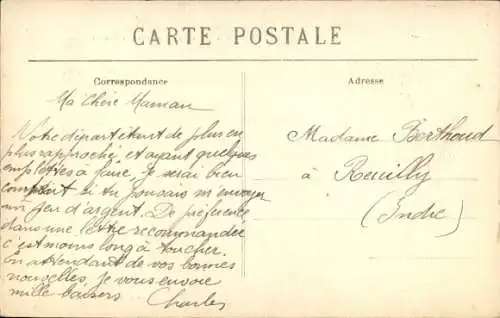 CARTE POSTALE
Correspondance
Adresse
Ma Chère Maman
Notre départ étant de plus en
plus rapproché et ayant quelques
emplettes à faire, je serai bien
content si tu pouvais m'envoyer
un peu d'argent. De préférence
dans une lettre recommandée
c'est moins long à toucher.
En attendant de vos bonnes
nouvelles, je vous envoie
mille baisers Charles
Madame Berthoud
à Reuilly
(Indre)